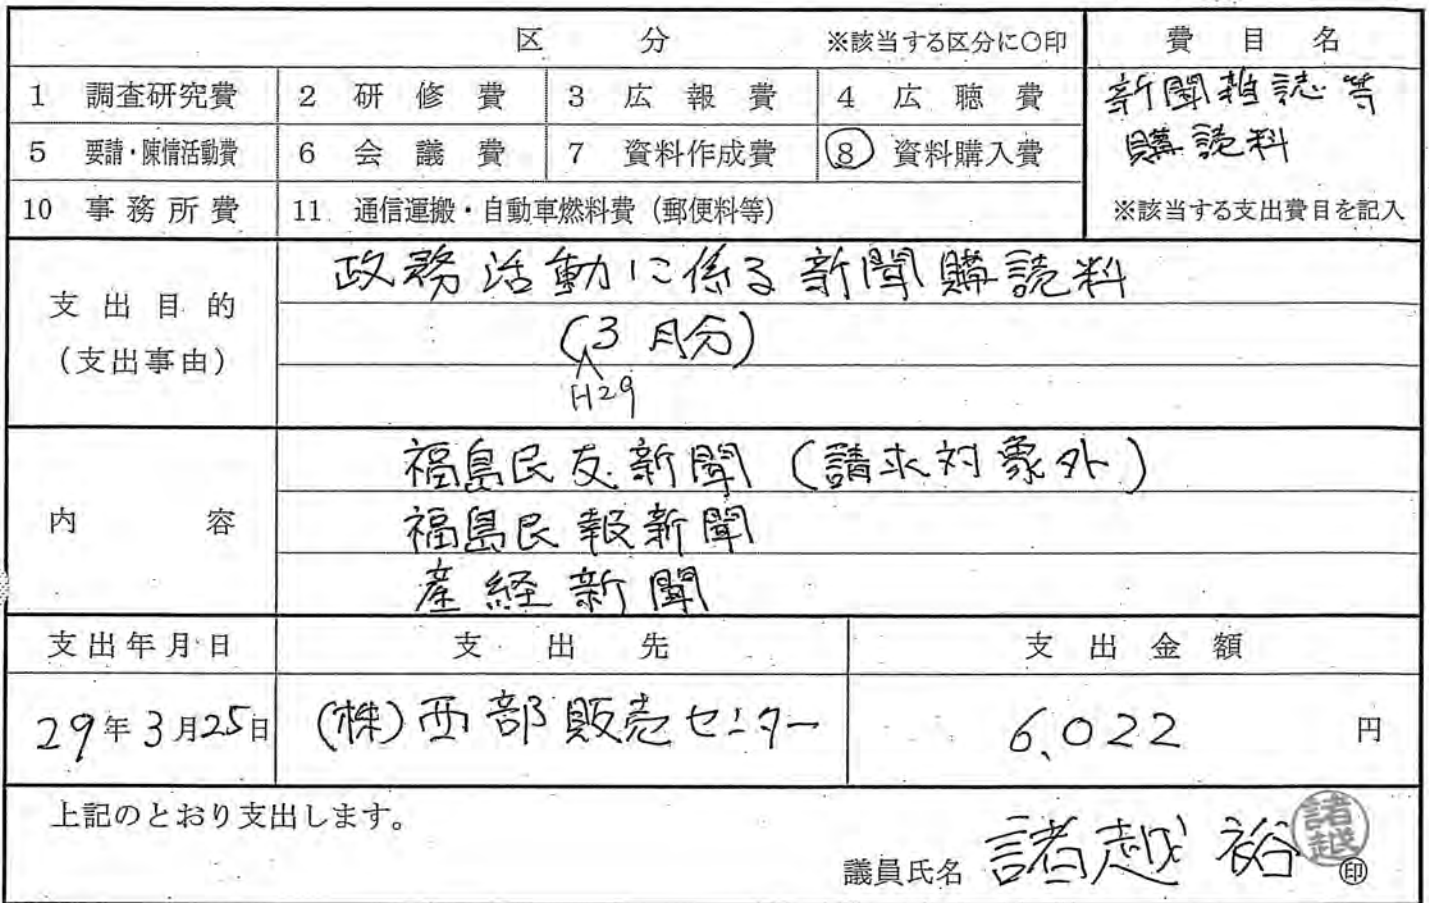 区 分 ※該当する区分に○印 費 目 名
1 調査研究費 2 研 修 費 3 広 報 費 4 広 聴 費 新聞雑誌等
5 要請・陳情活動費 6 会 議 費 7 資料作成費 8 資料購入費 購読料
10 事務所費 11 通信運搬・自動車燃料費（郵便料等） ※該当する支出費目を記入
支出目的
（支出事由）
政務活動に係る新聞購読料
（3月分）
H29
内 容
福島民友新聞（請求対象外）
福島民報新聞
産経新聞
支出年月日 支 出 先 支 出 金 額
29年3月25日 (株)西部販売センター 6,022 円
上記のとおり支出します。
議員氏名 諸越 裕 諸越 印